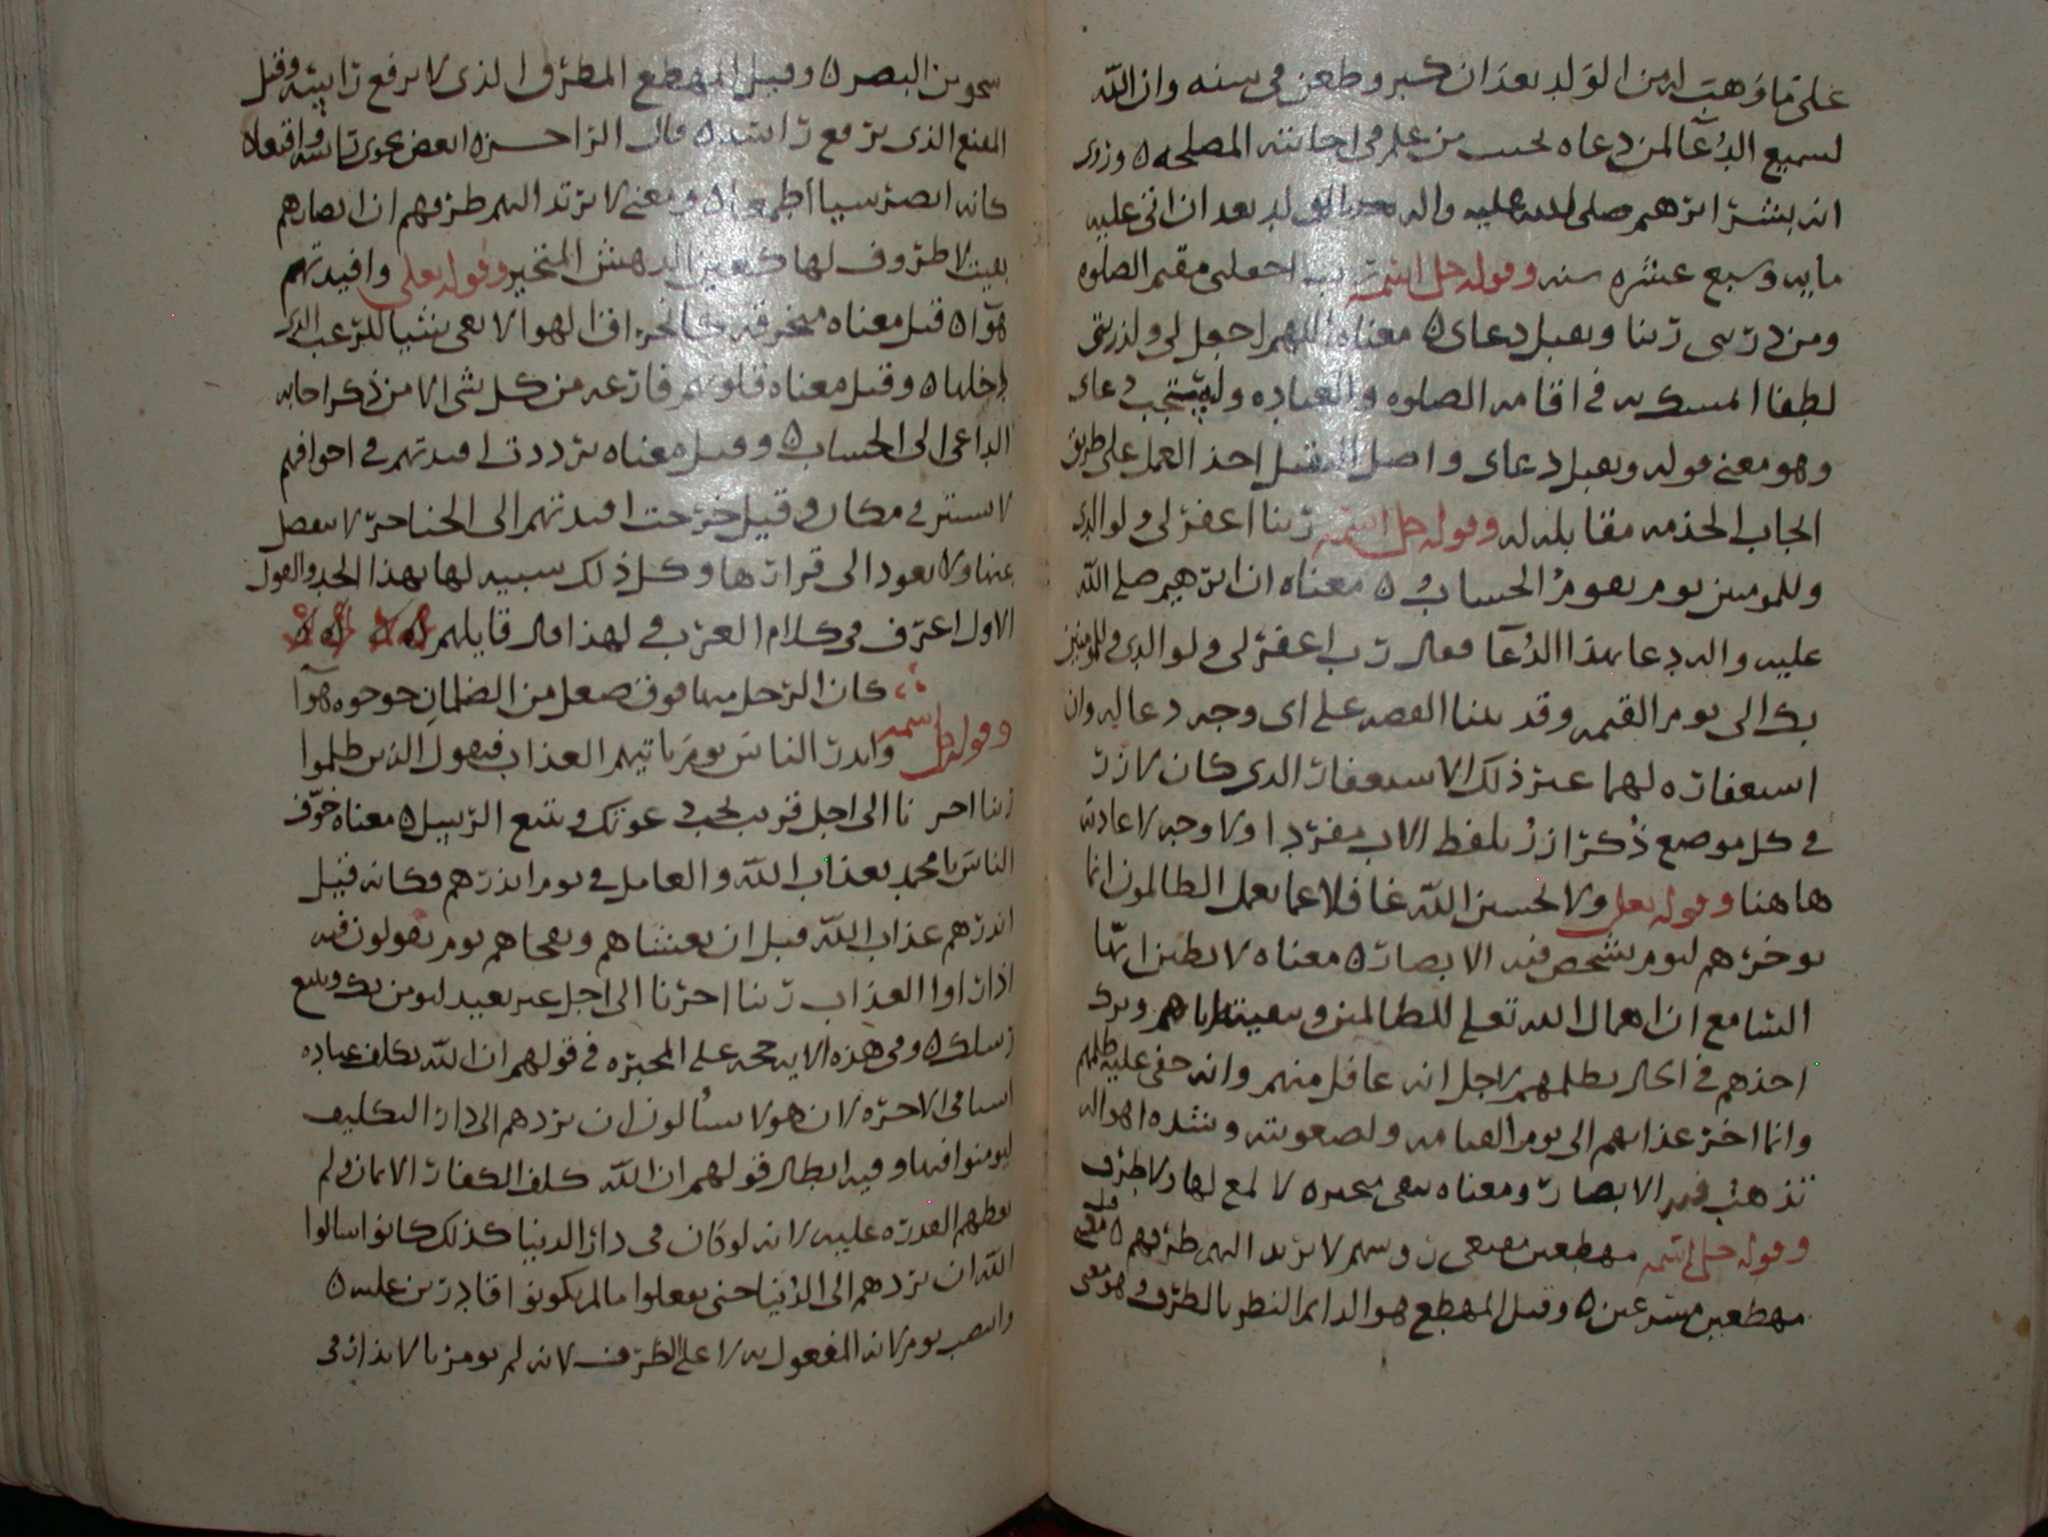 على ما وهب له من الولد بعد ان كبر وطعن في سنه وان الله
لسميع الدعآ لمن دعاه بحسب من علم في اجابته المصلحه ه وروى
انه بشر ابرهيم صلى الله عليه واله بالولد بعد ان اتى عليه
مايه وسبع عشره سنه وقوله جل اسمه رب اجعلنى مقيم الصلوه
ومن ذريتى ربنا وتقبل دعاى ه معناه اللهم اجعل لى ولذريتى
لطفا نتمسك به في اقامه الصلوه والعباده وليستجب دعاى
وهو معنى قوله وتقبل دعاى واصل التقبل اخذ العمل على طريق
ايجاب الحق به مقابله له وقوله جل اسمه ربنا اغفر لى ولوالدى
وللمومنين يوم يقوم الحساب ه معناه ان ابرهيم صلى الله
عليه واله دعا بهذا الدعآ فقال رب اغفر لى ولوالدى وللمومنين
بك الى يوم القيمه وقد بينا القصه على اى وجه دعا ليه وان
استغفاره لهما غير ذلك الاستغفار الذى كان لازر
في كل موضع ذكر ازر بلفظ الاب مفردا ولا وجه لاعادته
هاهنا وقوله تعلى ولا تحسبن الله غافلا عما يعمل الظالمون انما
يوخرهم ليوم تشخص فيه الابصار ه معناه لا يظن ايها
السامع ان امهال الله تعلى للظالمين وتبقيته اياهم وترك
اخذهم في الحال بظلمهم لاجل انه غافل عنهم وانه خفى عليه ظلمهم
وانما اخر عذابهم الى يوم القيامه ولصعوبته وشده اهواله
تذهب فيه الابصار ومعناه تبقى متحيره لا لمع لها ولا طرف
وقوله جل اسمه مهطعين مقنعى روسهم لا يرتد اليهم طرفهم ه قيل معنى
مهطعين مسرعين ه وقيل المهطع هو الدايم النظر بالطرف وهو معنى
شخوص البصر ه وقيل المهطع المطرق الذى لا يرفع راسه وقيل
المقنع الذى يرفع راسه ه قال الراجز ه انغض نحوى راسه واقنعا ه
كانه ابصر سيا اطمعا ه ومعنى لا يرتد اليهم طرفهم ان ابصارهم
بقيت لا طروف لها كعين الدهش المتحير وقوله تعلى وافيدتهم
هوآ ه قيل معناه منخرقه كالخرق الهوا لا تعى شيا للرعب الذى
دخلها ه وقيل معناه قلوبهم فارغه من كل شى الا من ذكر اجابه
الداعى الى الحساب ه وقيل معناه ترددت افيدتهم في اجوافهم
لا تستقر في مكان وقيل خرجت افيدتهم الى الحناجر لا تنفصل
عنها ولا تعود الى قرارها وكل ذلك تشبيه لها بهذا الحد والقول
الاول اعرف في كلام العرب في لهذا قال قايلهم ه ه ه ه
كان الرحل منها فوق صعل من الظلمان جوجوه هوآ
وقوله جل اسمه وانذر الناس يوم ياتيهم العذاب فيقول الذين ظلموا
ربنا اخرنا الى اجل قريب نجب دعوتك ونتبع الرسل ه معناه خوف
الناس يا محمد بعذاب الله والعامل في يوم انذرهم وكانه قيل
انذرهم عذاب الله قبل ان يغشاهم ويفجاهم يوم يقولون فيه
اذا راوا العذاب ربنا اخرنا الى اجل غير بعيد لنومن بك ونتبع
رسلك ه وفى هذه الايه حجه على المجبره في قولهم ان الله يكلف عباده
ايضا في الاخره لان هولا يسألون ان يردهم الى دار التكليف
ليومنوا فيها وفيه ابطال قولهم ان الله كلف الكفار الايمان ولم
يعطهم القدره عليه لانه لو كان في دار الدنيا كذلك كانوا سالوا
الله ان يردهم الى الدنيا حتى يفعلوا ما لم يكونوا قادرين عليه ه
وانتصب يوم لانه المفعول به لا على الظرف لانه لم يومر بالانذار في